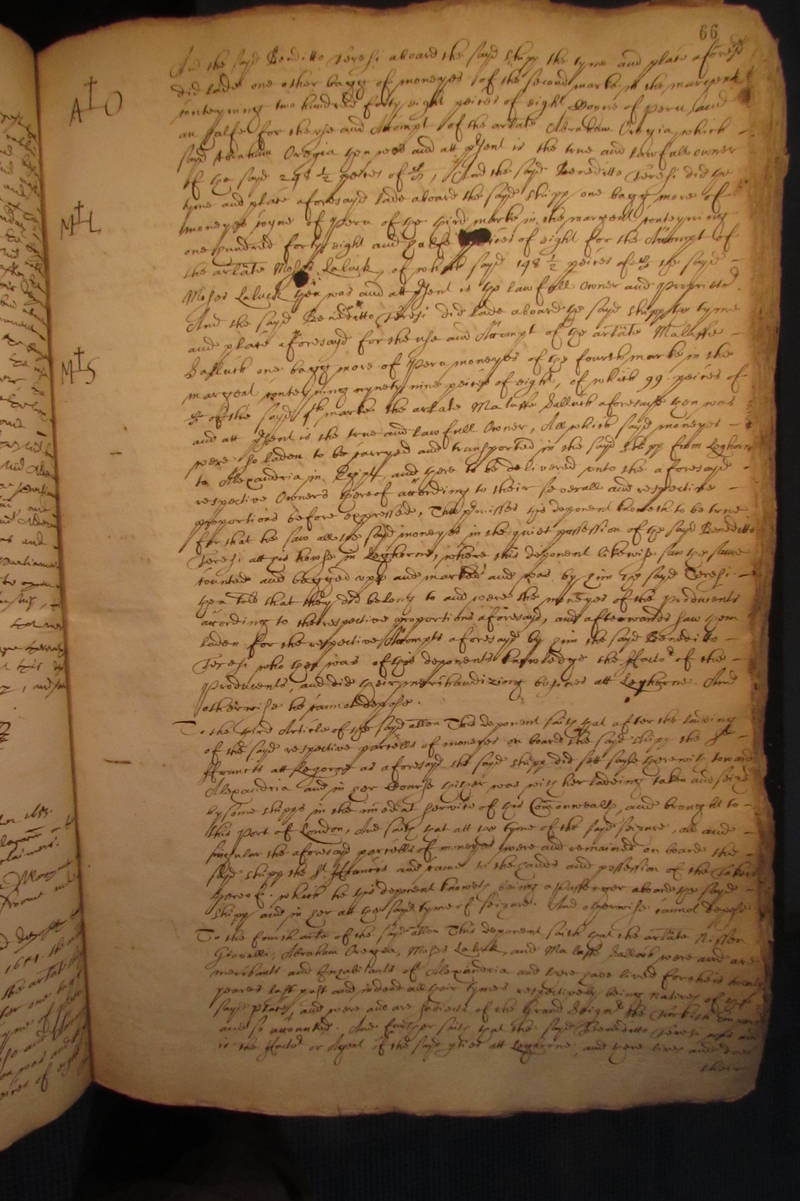 66
And the sayd Benditto Teresi aboard the sayd shipp the tyme and place aforesayd
did lade one other bagg of moneyes of the second marke in the margent
A O
conteyning two hundred forty eight peices of eight Coyne of Peru, and
an halfe for the use and Accompt of the arlate Abraham Oregia, which
sayd Abraham Oregia then was and att present is the true and lawfull owner
of the said 248 ½ peices of 8/8, And the sayd Beneditto Teresi did the
tyme and place aforesayd lade aboard the sayd shipp one bagg more of
M L
moneyes coyne of Peru of the third marke in the margent conteyning
one hundred forty eight and halfe peices of eight for the Accompt of
the arlate Moses Laluck, of which sayd 148 ½ peices of 8/8 the sayd
Moses Laluck then was and att present is the lawfull owner and Proprietor
And the sayd Benditto Teresi did lade aboard the sayd shipp the tyme
and place aforesayd for the use and Accompt of the arlate Malasse
M S
Salluck one bagg more of Peru moneyes of the fourth marke in the
margent conteyning nynety nine peices of eight, of which 99 peices of
8/8 of the said 4th marke the arlate Malasse Salluck aforesayd then was
and att present is the true and lawfull Owner, All which sayd moneyes
were so laden to be carryed and transported in the sayd shipp from Leghorne
to Alexandria in Egipt, and there to be delivered unto the aforesayd
respective Owners thereof according to their severall and respective
proportions before expressed, The premisses this deponent knoweth to be true
for that he saw all the sayd moneyes in the quiet possession of the sayd Benditto
Teresi att his howse in Leghorne, where this deponent likewise saw the same
counted and bagged upp and marked and was by him the sayd Teresi
then told that they did belong to and were the moneyes of the producents
according to the respective proportions aforesayd, and afterwards saw them
laden for the respective Accompts aforesayd by him the sayd Benditto
Teresi who then was of this deponents knowledge the Factor of the
Producents, and did their merchandizing busines att Leghorne. And
otherwise he cannot depose.
To the third Article of the sayd allon This deponent saith that after the lading
of the sayd respective parcells of moneyes on board the sayd shipp the St
Francis att Legorne as aforesayd the sayd shipp did sett sayle therewith toward
Alexandria and in her Course thither was with her ladeing taken and seized
by some shipps in the imediat service of this Comonwealth, and brought to
this Port of London, And saith that att the tyme of the sayd seizure, all and
singular the aforesayd parcells of moneyes were and remained on board the
sayd shipp the St Francis and came to the hands and possession of the takers
thereof. which he this deponent knoweth being a Passenger aboard the sayd
shipp and in her att the sayd tyme of seizure. And otherwise cannot depose
To the fourth arle of the sayd allon This deponent saith that the arlate Nissen
Abraham Oregia, Moses Laluck, and Malasse Salluck were and are
merchants and Inhabitants of Alexandria and there have lived for theis twenty
yeares last past and indeed all their tymes respectively being natives of that
sayd place, and were and are subjects of the Grand Seignor the Turkish
and so accounted. And further saith that the sayd Benditto Teresi was and
is the Factor or Agent of the sayd parties att Leghorne, and there lives and
their